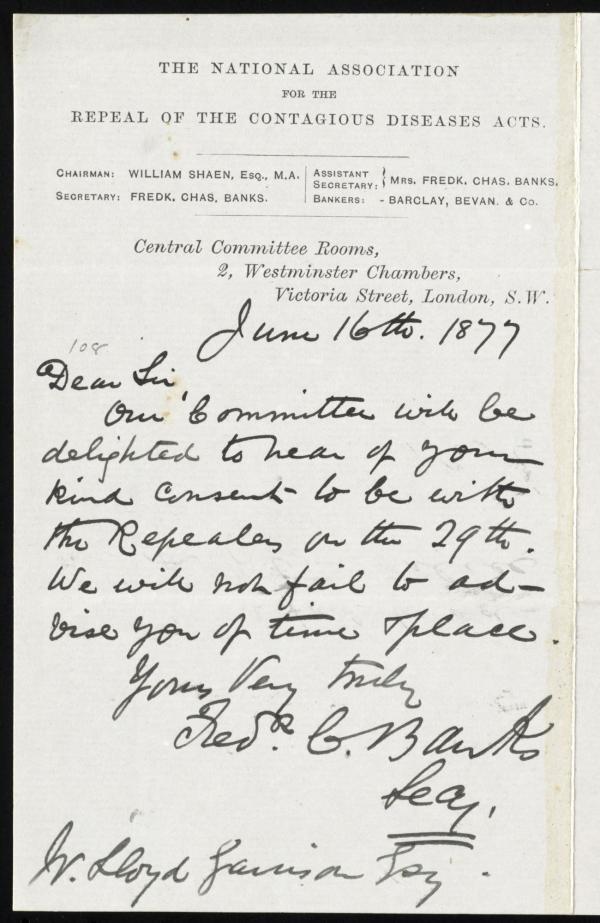 THE NATIONAL ASSOCIATION
FOR THE
REPEAL OF THE CONTAGIOUS DISEASES ACTS.
CHAIRMAN: WILLIAM SHAEN, ESQ., M.A.
SECRETARY: FREDK. CHAS. BANKS.
ASSISTANT SECRETARY: MRS. FREDK. CHAS. BANKS.
BANKERS: - BARCLAY, BEVAN. & CO.
Central Committee Rooms,
2, Westminster Chambers,
Victoria Street, London, S.W.
June 16th. 1877
108
Dear Sir
Our Committee will be
delighted to hear of your
kind consent to be with
the Repealers on the 29th.
We will not fail to ad-
vise you of time & place.
Yours Very truly
Fredk. C. Banks
Secy.
W. Lloyd Garrison Esq.